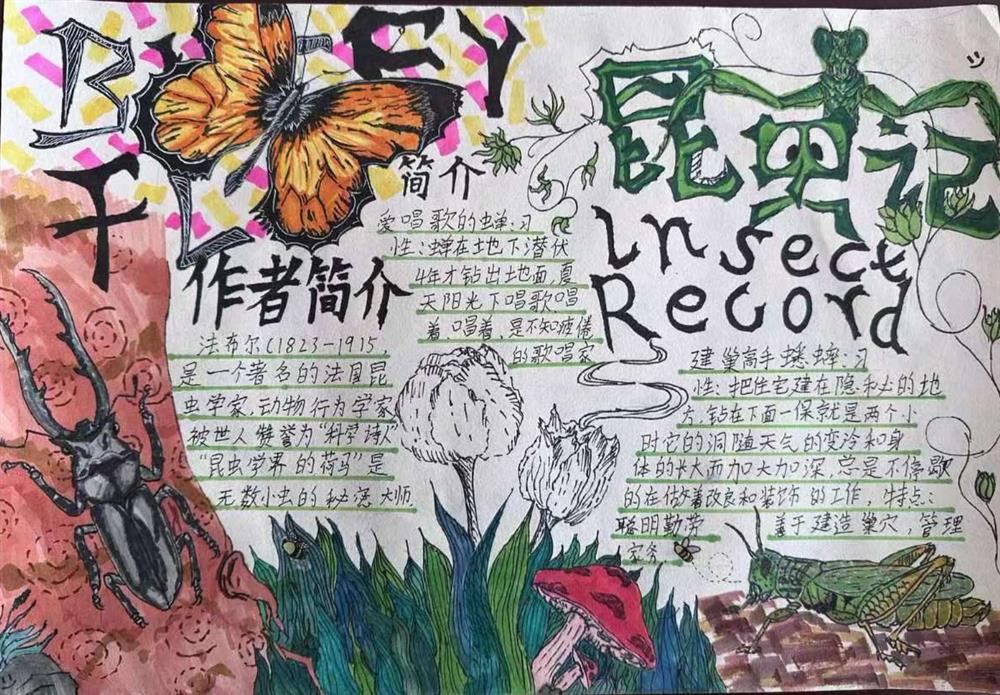 昆虫记
Insect
Record
简介
爱唱歌的蝉:习
性:蝉在地下潜伏
4年才钻出地面,夏
天阳光下唱歌唱
着唱着、是不知疲倦
的歌唱家
作者简介
法布尔(1823-1915,
是一个著名的法国昆
虫学家.动物行为学家
被世人赞誉为“科学诗人”
“昆虫学界的荷马”是
无数小虫的秘密大师.
建巢高手蟋蟀:习
性:把住宅建在隐秘的地
方,钻在下面一保就是两个小
时它的洞随天气的变冷和身
体的长大而加大加深,总是不停歇
的在做着改良和装饰的工作,特点:
聪明勤劳 善于建造巢穴,管理
家务